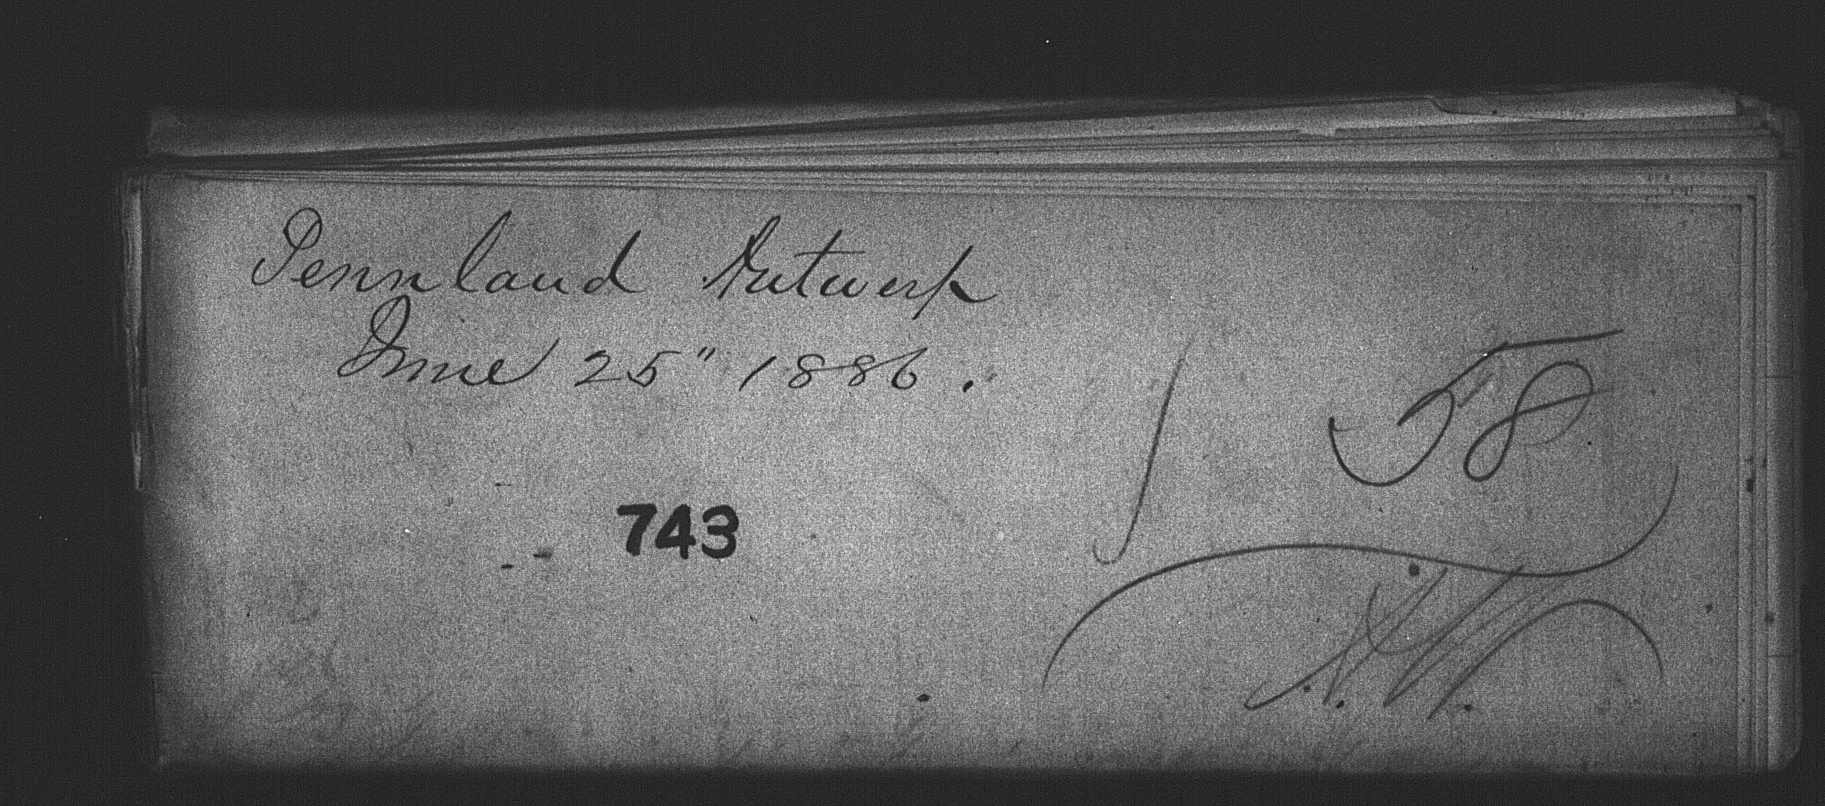 Pennland Antwerp
June 25" 1886.
58
743